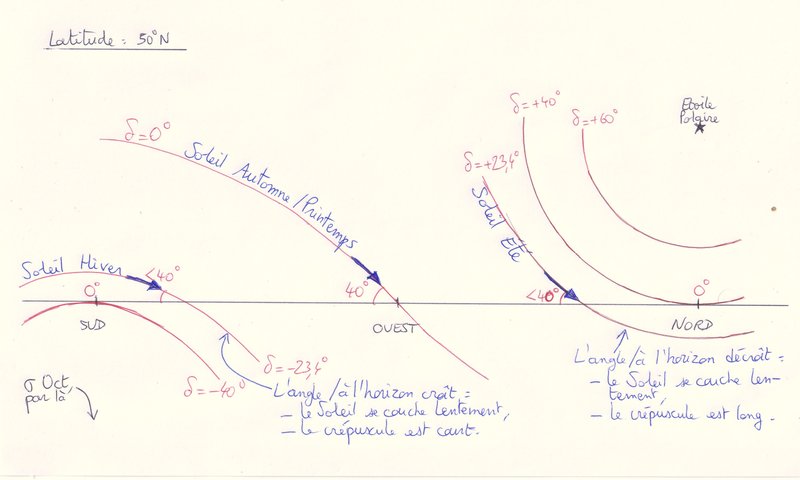 Latitude = 50°N
δ=0°
Soleil Automne/Printemps
δ=+40°
δ=+60°
Etoile
Polaire
δ=+23,4°
Soleil Eté
Soleil Hiver
<40°
0°
40°
<40°
0°
SUD
OUEST
NORD
δ=-23,4°
δ=-40°
σ Oct,
par là
L'angle/à l'horizon croît :
- le Soleil se couche lentement,
- le crépuscule est court.
L'angle/à l'horizon décroît :
- le Soleil se couche len-
tement,
- le crépuscule est long.